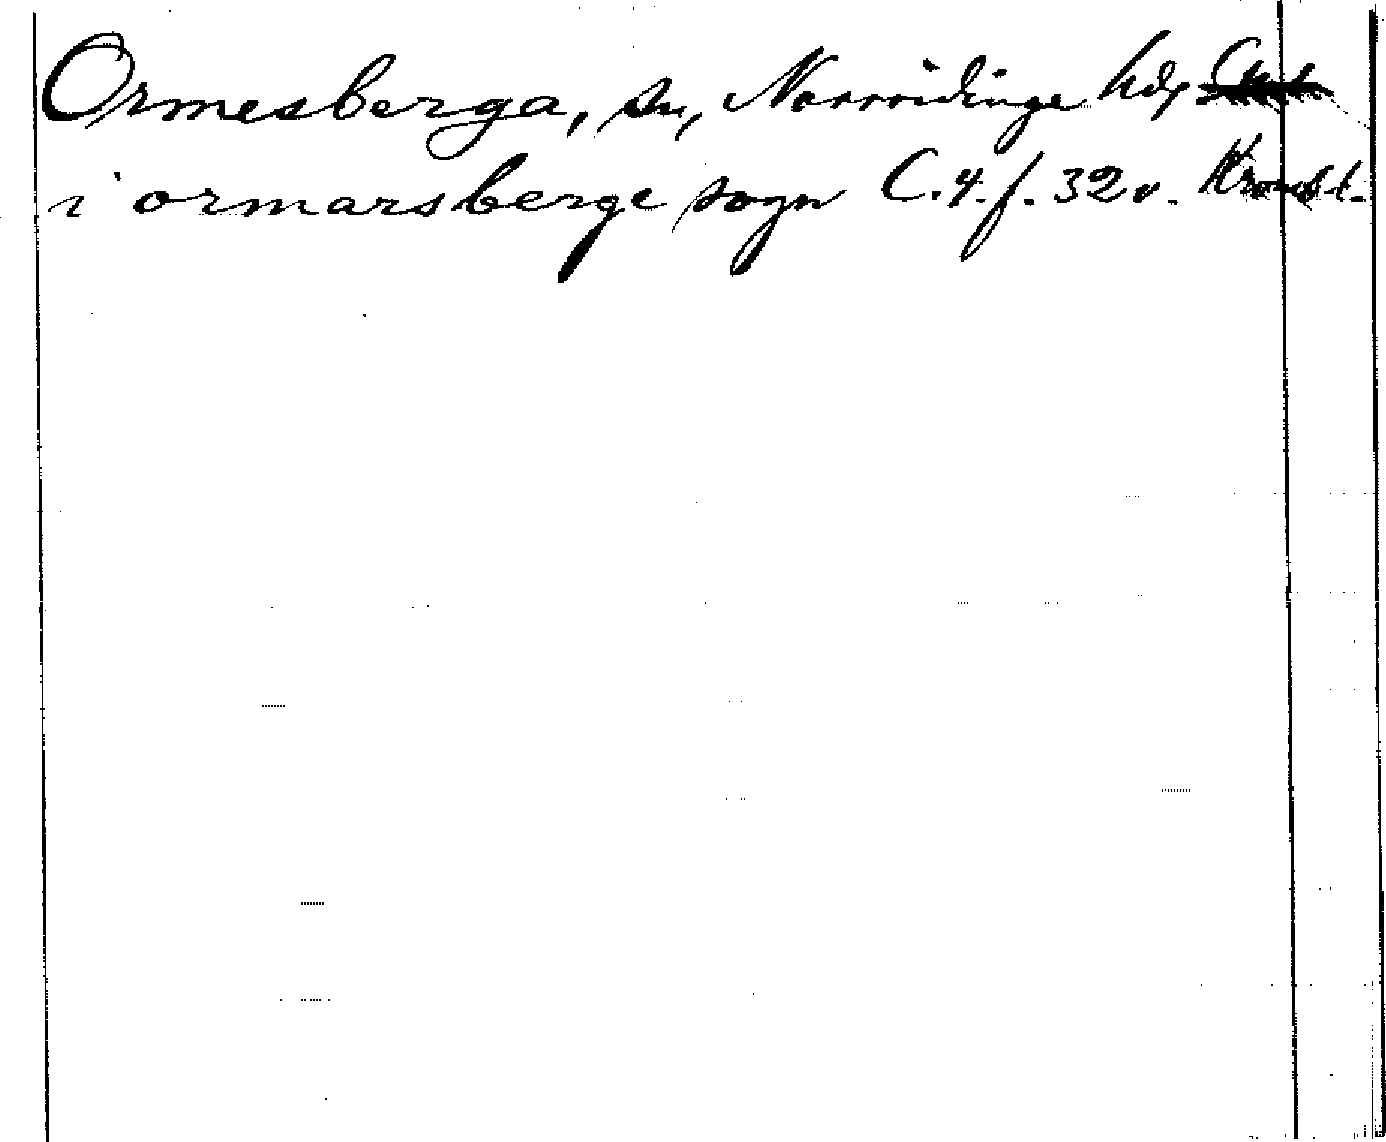 Ormesberga, sn, Norrvidinge hd,
i ormarsberge sogn C. 4. f. 32 v. Kronobl.